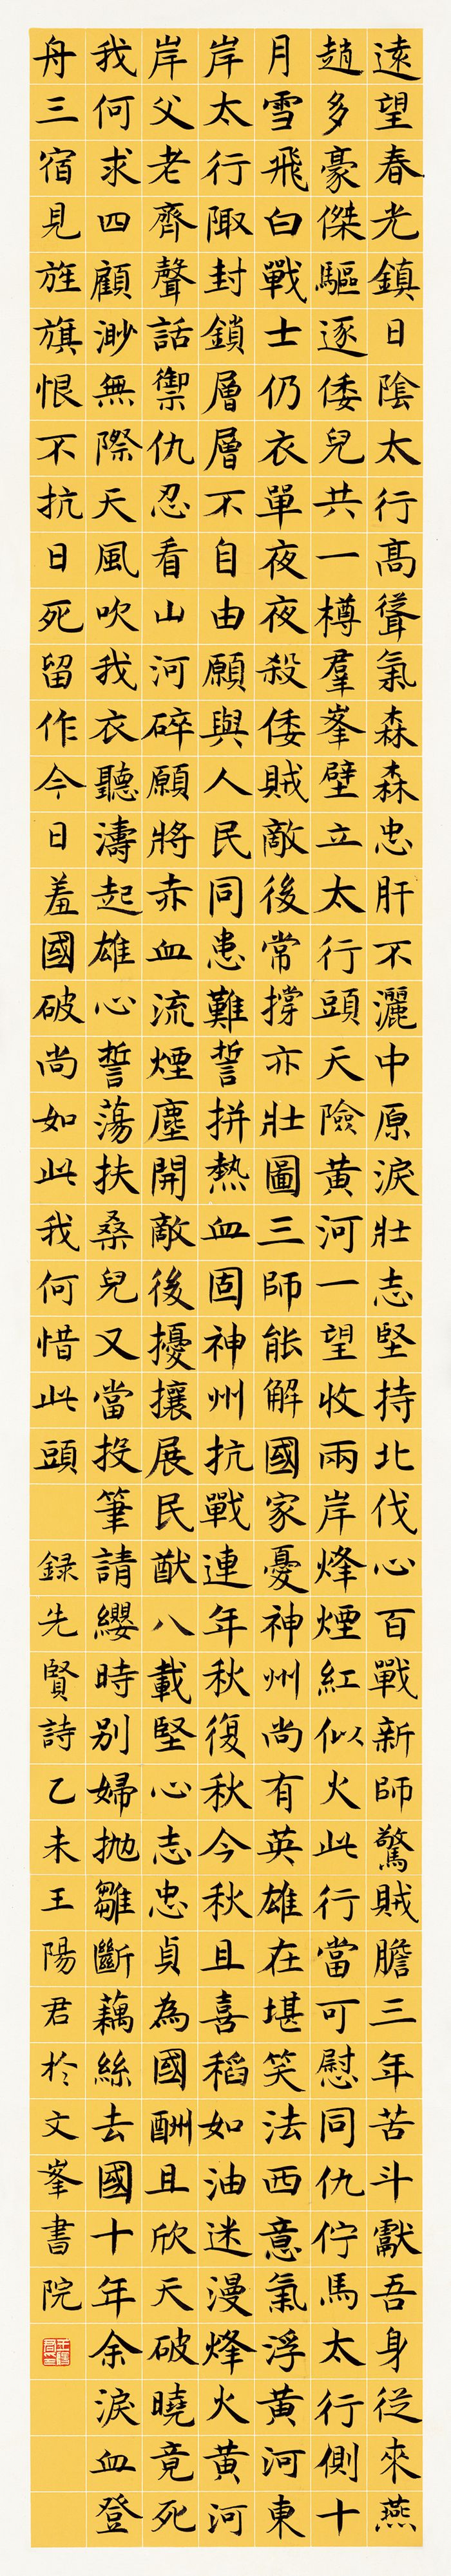 遠望春光鎮日陰太行高聳氣森森忠肝不灑中原淚壯志堅持北伐心百戰新師驚賊膽三年苦斗獻吾身從來燕
趙多豪傑驅逐倭兒共一樽羣峯壁立太行頭天險黃河一望收兩岸烽煙紅似火此行當可慰同仇佇馬太行側十
月雪飛白戰士仍衣單夜夜殺倭賊敵後常撐亦壯圖三師能解國家憂神州尚有英雄在堪笑法西意氣浮黃河東
岸太行陬封鎖層層不自由願與人民同患難誓拼熱血固神州抗戰連年秋復秋今秋且喜稻如油迷漫烽火黃河
岸父老齊聲話禦仇忍看山河碎願將赤血流煙塵開敵後擾攘展民猷八載堅心志忠貞為國酬且欣天破曉竟死
我何求四顧渺無際天風吹我衣聽濤起雄心誓蕩扶桑兒又當投筆請纓時別婦拋雛斷藕絲去國十年余淚血登
舟三宿見旌旗恨不抗日死留作今日羞國破尚如此我何惜此頭
録先賢詩乙未王陽君於文峯書院